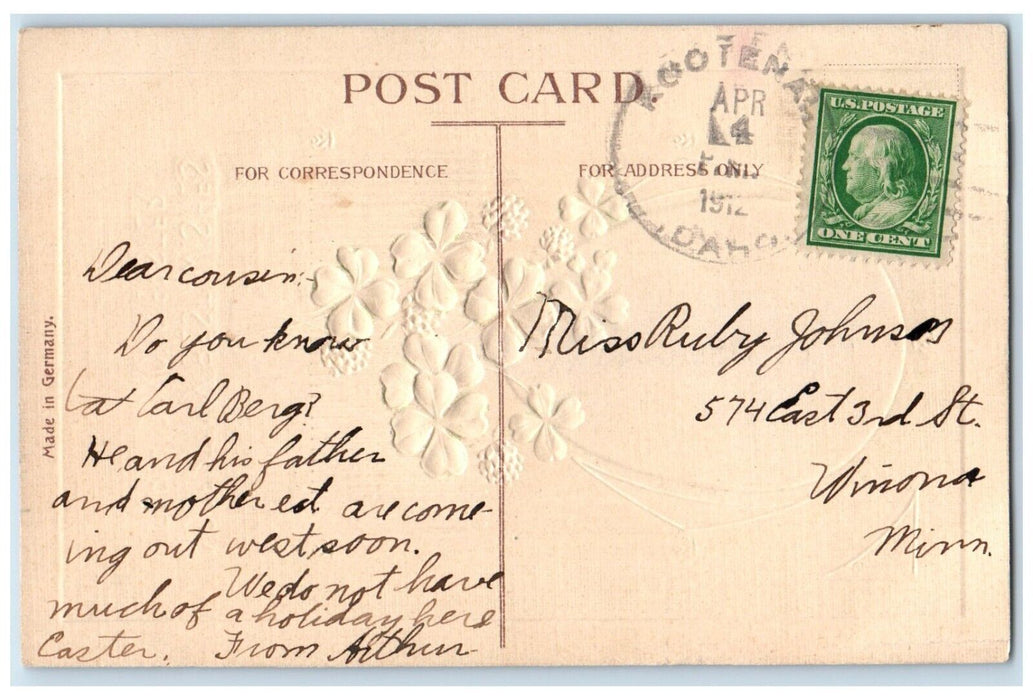 POST CARD
FOR CORRESPONDENCE
FOR ADDRESS ONLY
KOOTENAI
APR
14
1912
IDAHO
U.S. POSTAGE
ONE CENT
Made in Germany.
Dear cousin:-
Do you know
Carl Berg?
He and his father
and mother are come-
ing out west, soon.
We do not have
much of a holiday here
Easter. From Arthur
Miss Ruby Johnson
574 East 3rd St.
Winona
Minn.